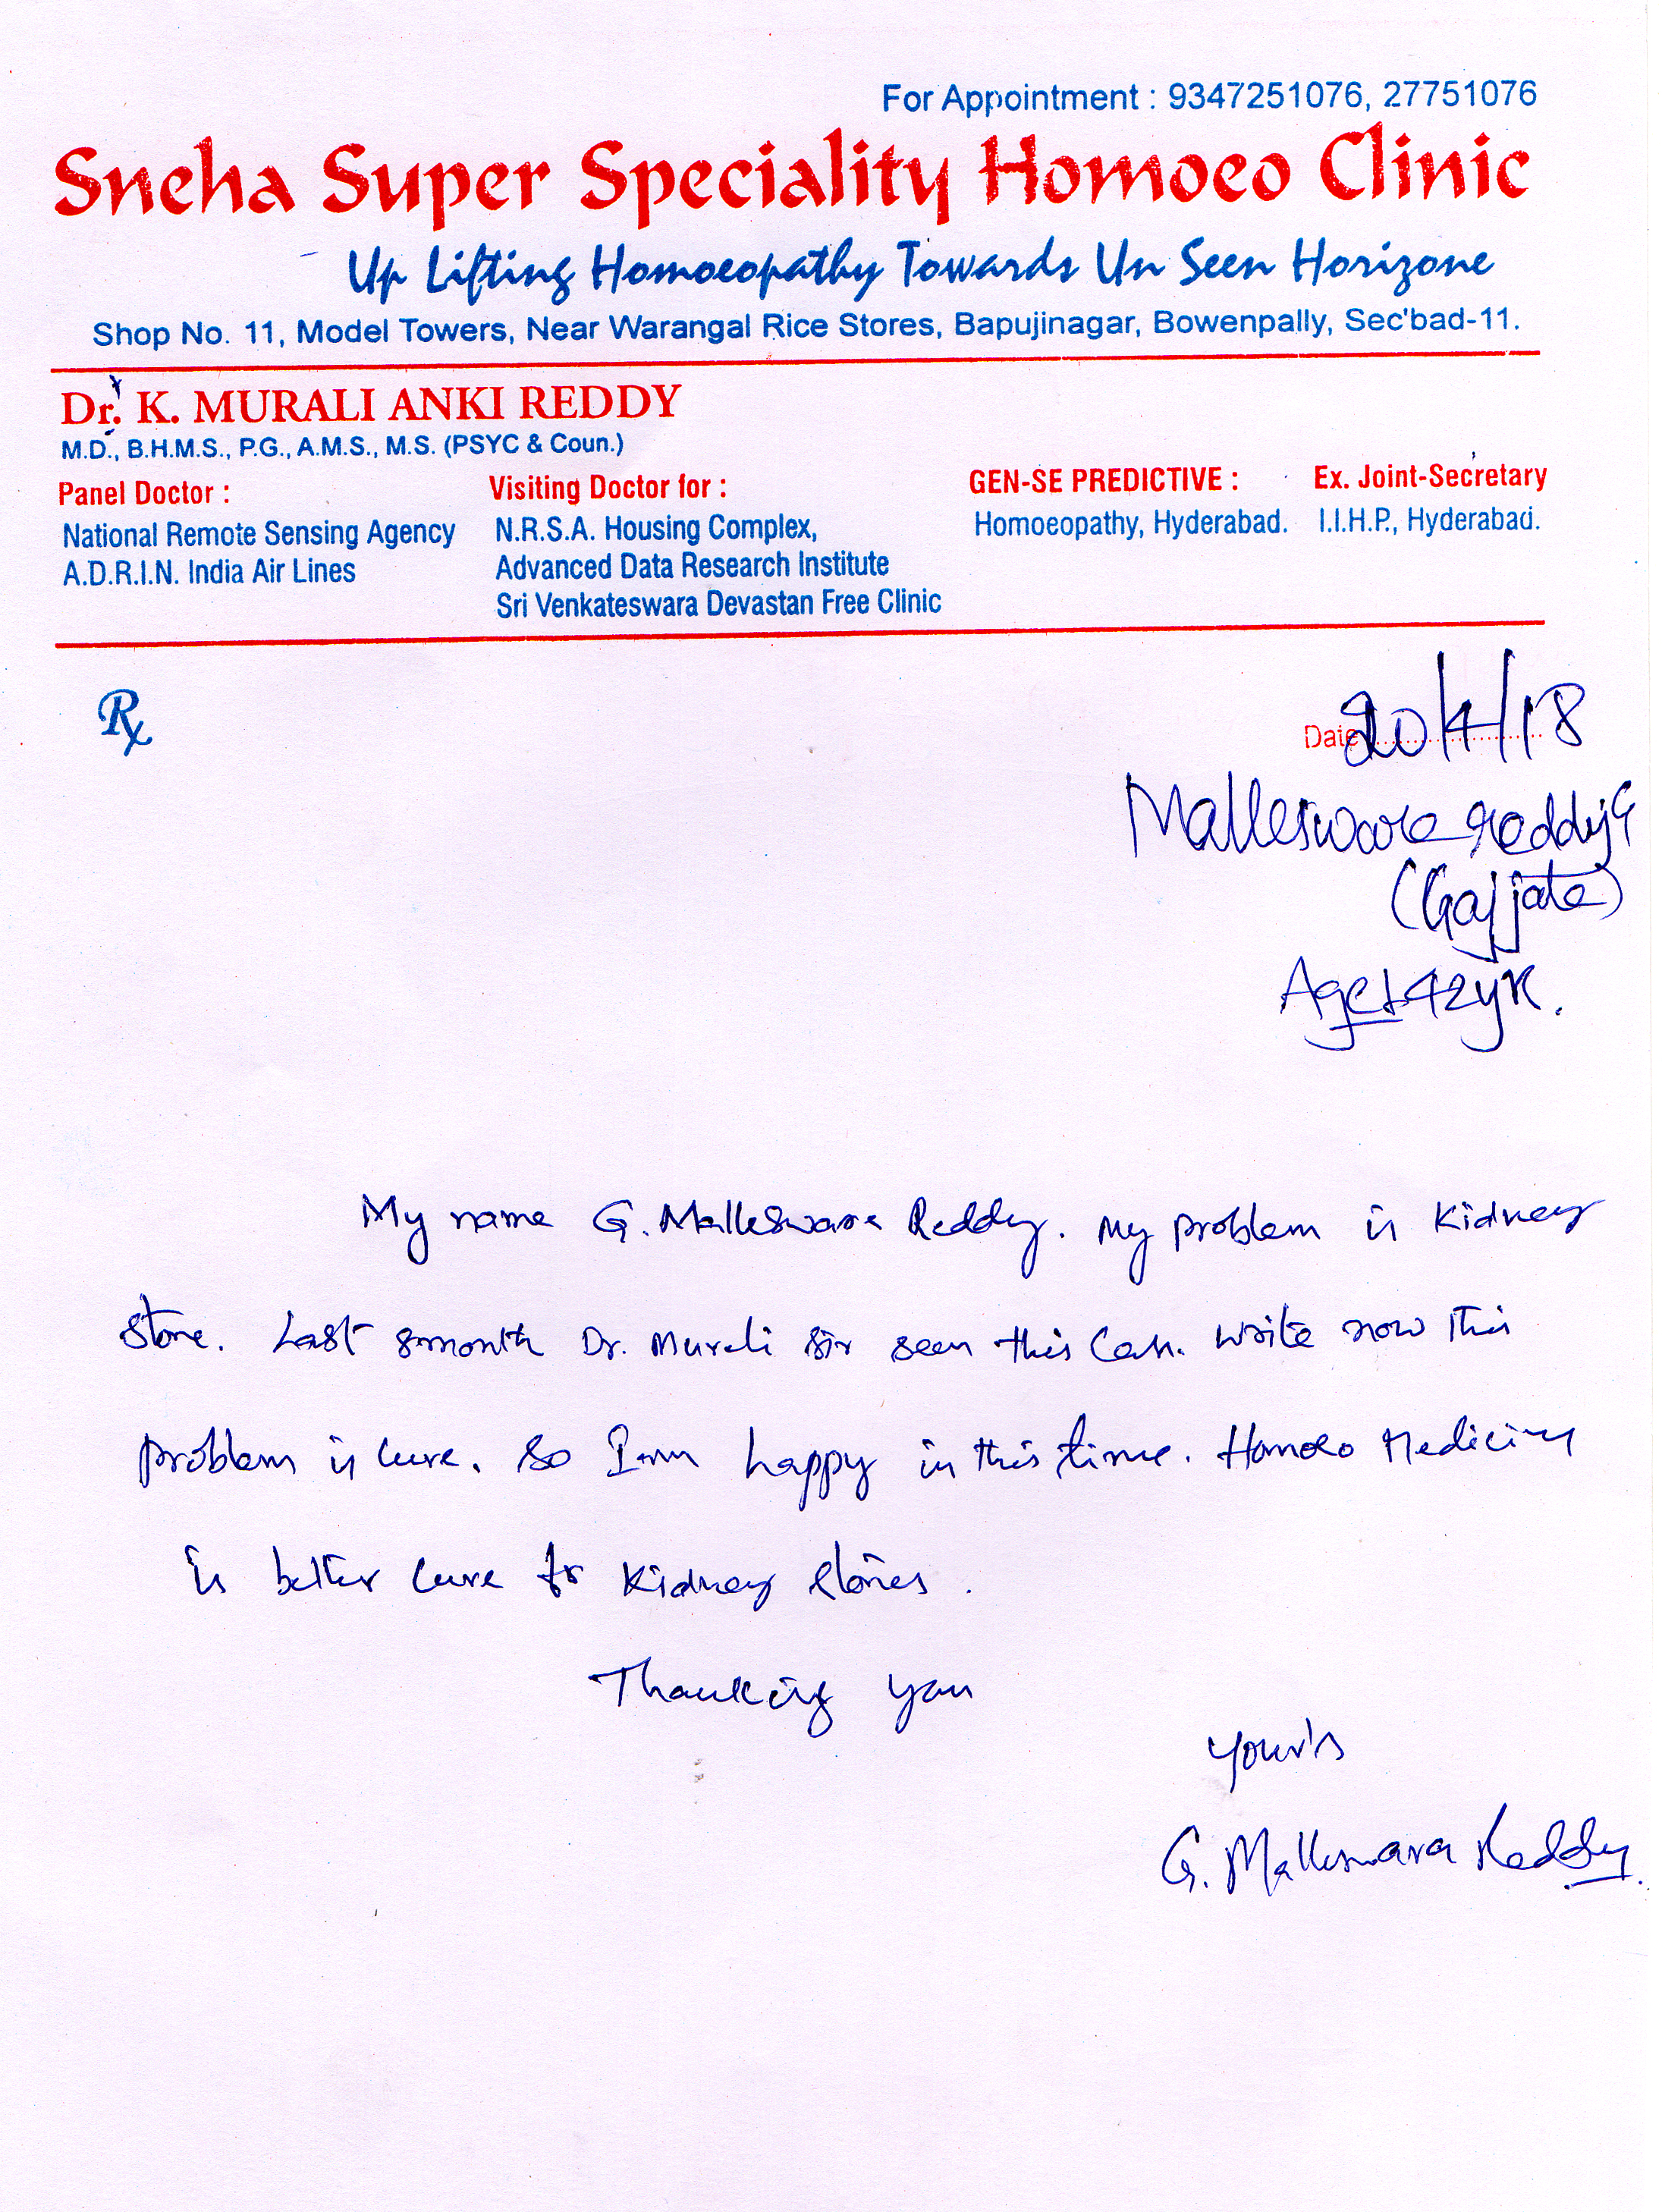 For Appointment : 9347251076, 27751076
Sneha Super Speciality Homoeo Clinic
Up Lifting Homoeopathy Towards Un Seen Horizone
Shop No. 11, Model Towers, Near Warangal Rice Stores, Bapujinagar, Bowenpally, Sec'bad-11.
Dr. K. MURALI ANKI REDDY
M.D., B.H.M.S., P.G., A.M.S., M.S. (PSYC & Coun.)
Panel Doctor :
National Remote Sensing Agency
A.D.R.I.N. India Air Lines
Visiting Doctor for :
N.R.S.A. Housing Complex,
Advanced Data Research Institute
Sri Venkateswara Devastan Free Clinic
GEN-SE PREDICTIVE :
Homoeopathy, Hyderabad.
Ex. Joint-Secretary
I.I.H.P., Hyderabad.
Rx
Date 20/4/18
Malleswara reddy G
Age 42yr.
My name G. Malleswara Reddy. My problem is Kidney
stone. Last month Dr. Murali sir seen this Case. Write now This
problem is cure. So I am happy in this time. Homoeo Medicine
is better cure for Kidney stones.
Thanking you
your's
G. Malleswara Reddy.